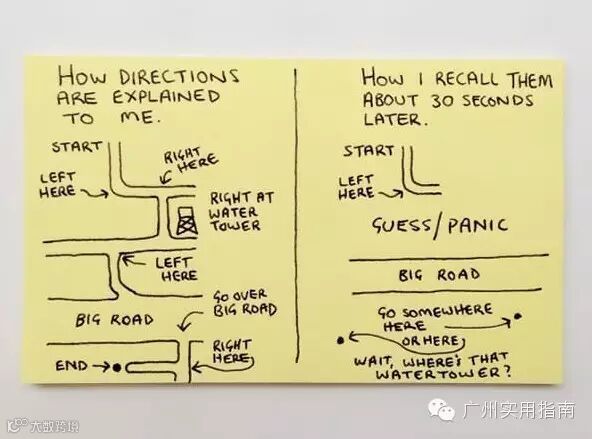 HOW DIRECTIONS
ARE EXPLAINED
TO ME.
START
RIGHT
HERE
LEFT
HERE
RIGHT AT
WATER
TOWER
LEFT
HERE
GO OVER
BIG ROAD
BIG ROAD
RIGHT
HERE
END
HOW I RECALL THEM
ABOUT 30 SECONDS
LATER.
START
LEFT
HERE
GUESS/PANIC
BIG ROAD
GO SOMEWHERE
HERE
OR HERE
WAIT, WHERE'S THAT
WATERTOWER?
大数跨境
广州实用指南